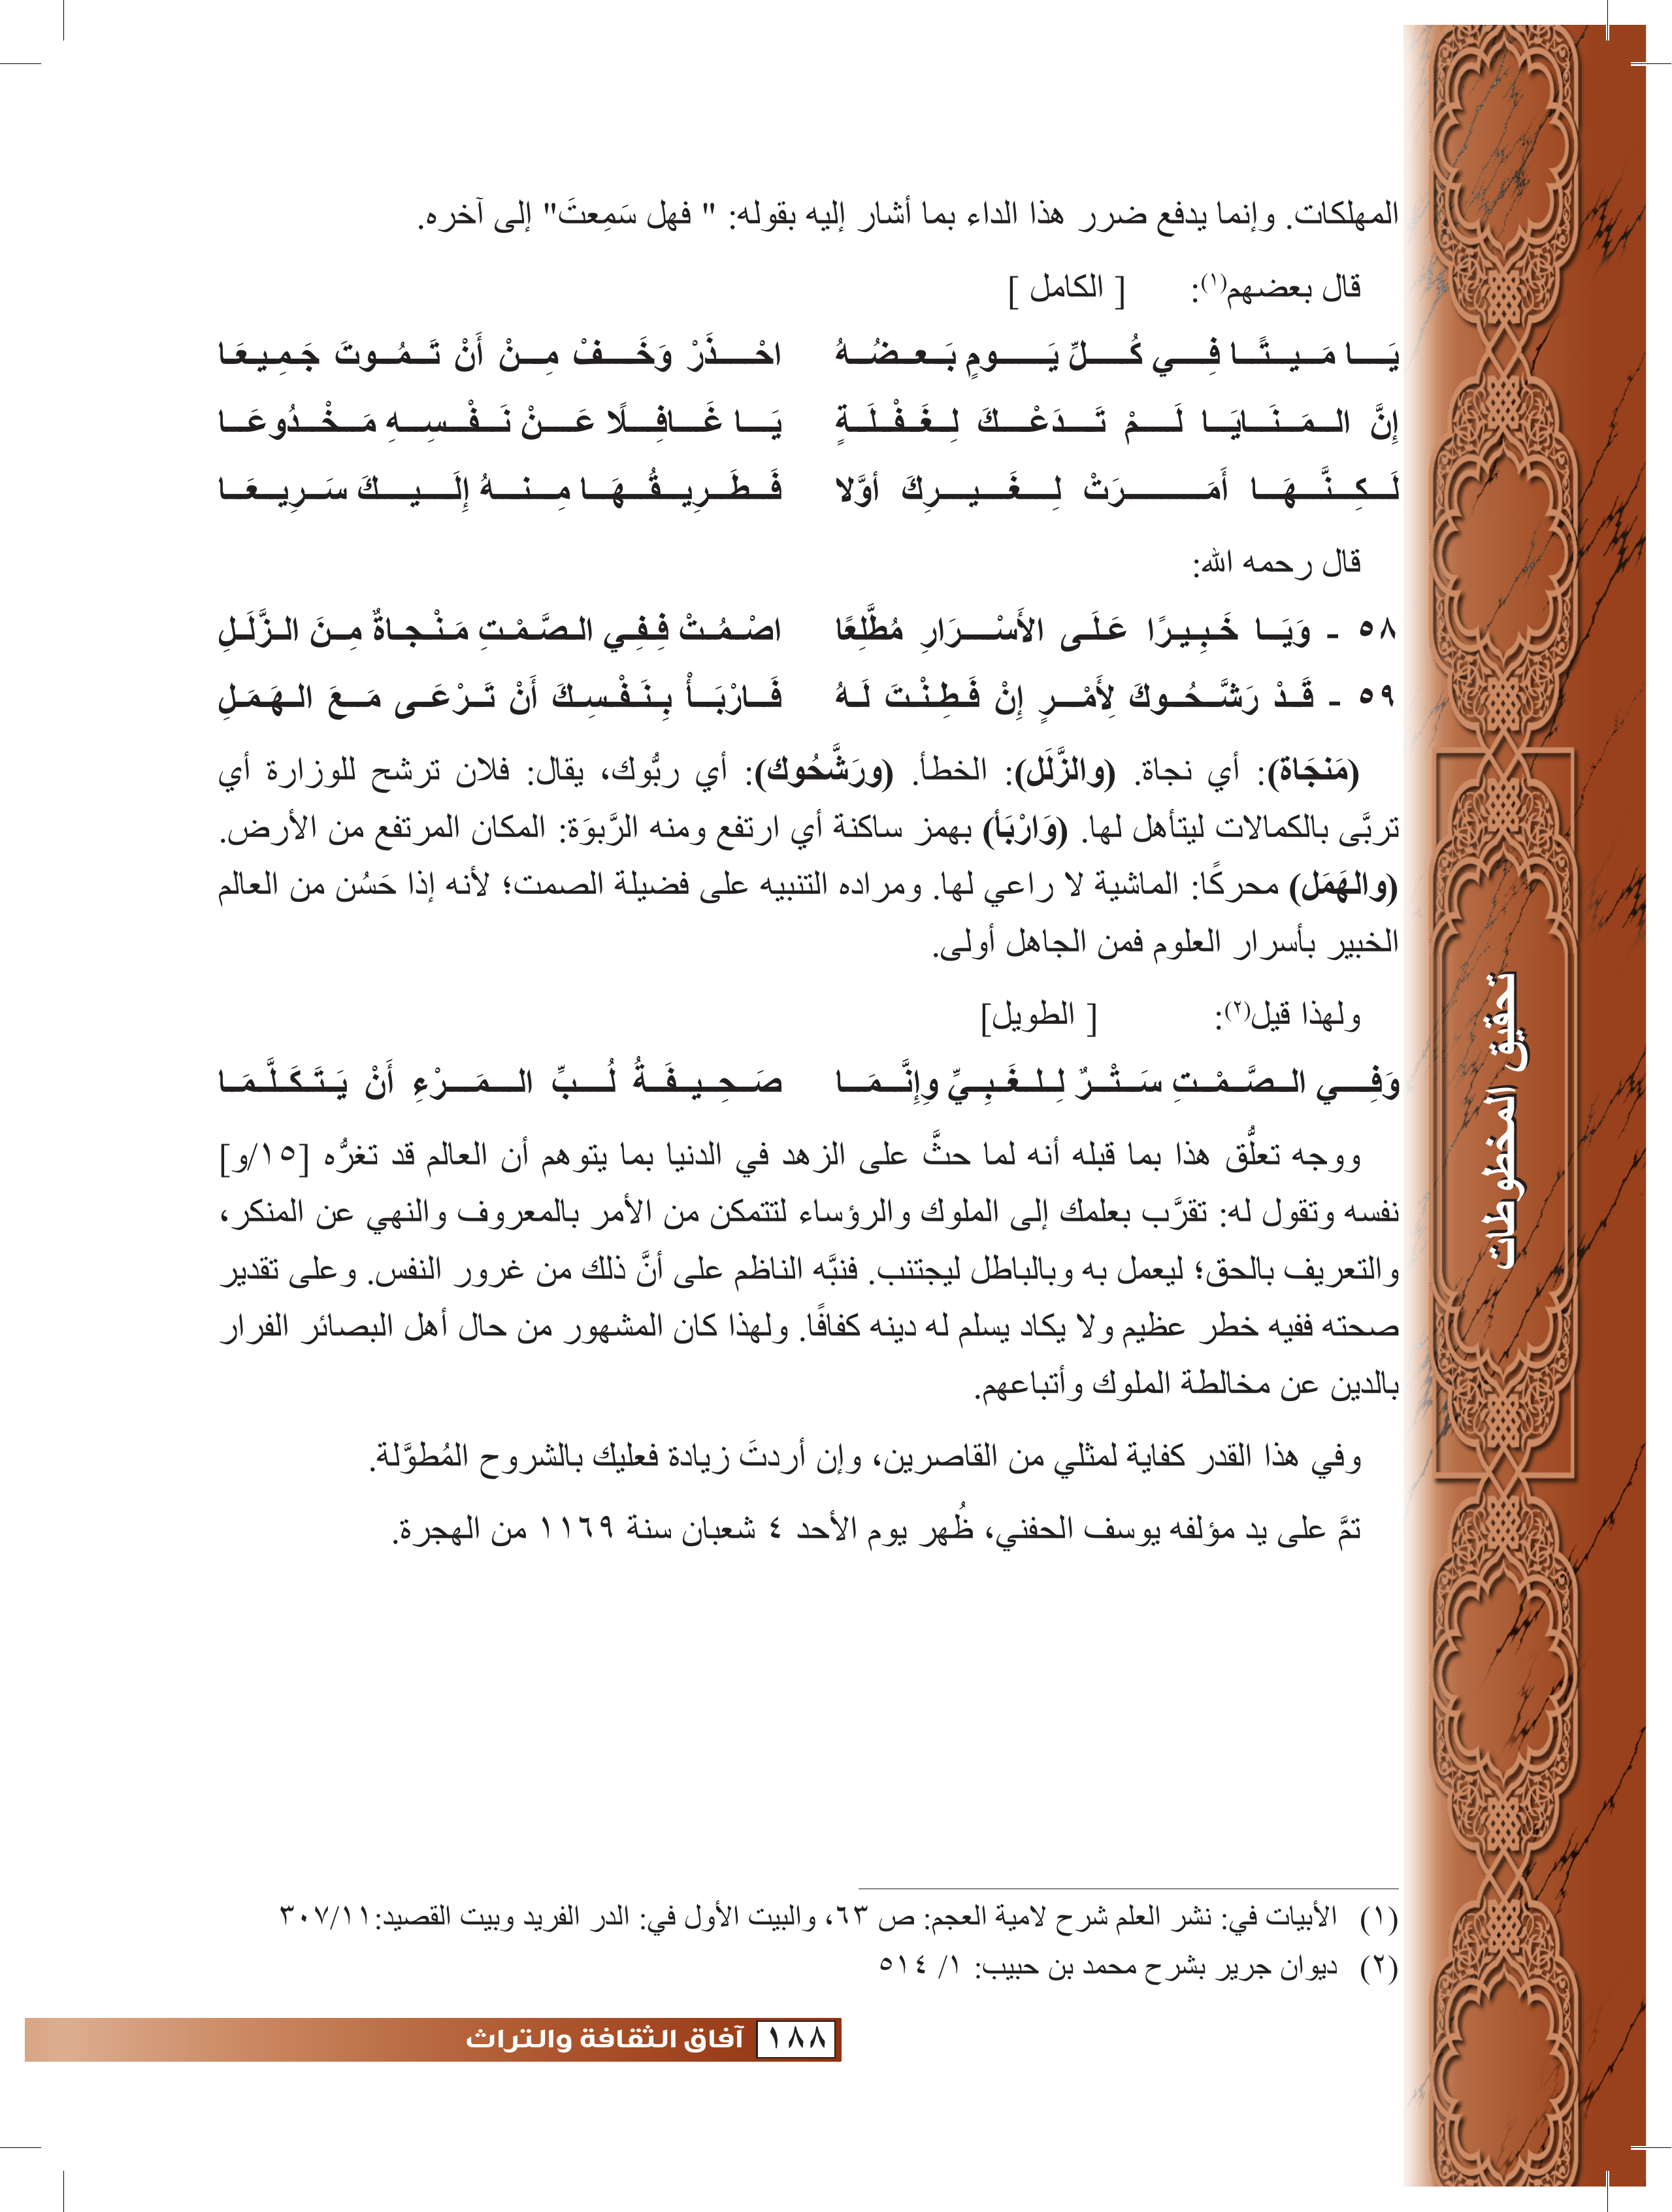 المهلكات. وإنما يدفع ضرر هذا الداء بما أشار إليه بقوله: " فهل سَمِعتَ" إلى آخره.
قال بعضهم(١): [ الكامل ]
يَا مَيتًا فِي كُلِّ يَومٍ بَعضُهُ احْذَرْ وَخَفْ مِنْ أَنْ تَمُوتَ جَمِيعَا
إِنَّ المَنَايَا لَمْ تَدَعْكَ لِغَفْلَةٍ يَا غَافِلًا عَنْ نَفْسِهِ مَخْدُوعَا
لَكِنَّهَا أَمَرَتْ لِغَيرِكَ أوَّلا فَطَرِيقُهَا مِنهُ إِلَيكَ سَرِيعَا
قال رحمه الله:
٥٨ - وَيَا خَبِيرًا عَلَى الأَسْرَارِ مُطَّلِعًا اصْمُتْ فِفِي الصَّمْتِ مَنْجاةٌ مِنَ الزَّلَلِ
٥٩ - قَدْ رَشَّحُوكَ لِأَمْرٍ إِنْ فَطِنْتَ لَهُ فَارْبَأْ بِنَفْسِكَ أَنْ تَرْعَى مَعَ الهَمَلِ
(مَنجَاة): أي نجاة. (والزَّلَل): الخطأ. (ورَشَّحُوك): أي ربُّوك، يقال: فلان ترشح للوزارة أي
تربَّى بالكمالات ليتأهل لها. (وَارْبَأ) بهمز ساكنة أي ارتفع ومنه الرَّبوَة: المكان المرتفع من الأرض.
(والهَمَل) محركًا: الماشية لا راعي لها. ومراده التنبيه على فضيلة الصمت؛ لأنه إذا حَسُن من العالم
الخبير بأسرار العلوم فمن الجاهل أولى.
ولهذا قيل(٢): [ الطويل]
وَفِي الصَّمْتِ سَتْرٌ لِلغَبِيِّ وِإِنَّمَا صَحِيفَةُ لُبِّ المَرْءِ أَنْ يَتَكَلَّمَا
ووجه تعلُّق هذا بما قبله أنه لما حثَّ على الزهد في الدنيا بما يتوهم أن العالم قد تغرُّه [١٥/و]
نفسه وتقول له: تقرَّب بعلمك إلى الملوك والرؤساء لتتمكن من الأمر بالمعروف والنهي عن المنكر،
والتعريف بالحق؛ ليعمل به وبالباطل ليجتنب. فنبَّه الناظم على أنَّ ذلك من غرور النفس. وعلى تقدير
صحته ففيه خطر عظيم ولا يكاد يسلم له دينه كفافًا. ولهذا كان المشهور من حال أهل البصائر الفرار
بالدين عن مخالطة الملوك وأتباعهم.
وفي هذا القدر كفاية لمثلي من القاصرين، وإن أردتَ زيادة فعليك بالشروح المُطوَّلة.
تمَّ على يد مؤلفه يوسف الحفني، ظُهر يوم الأحد ٤ شعبان سنة ١١٦٩ من الهجرة.
(١) الأبيات في: نشر العلم شرح لامية العجم: ص ٦٣، والبيت الأول في: الدر الفريد وبيت القصيد:٣٠٧/١١
(٢) ديوان جرير بشرح محمد بن حبيب: ١/ ٥١٤
١٨٨ آفاق الثقافة والتراث
تحقيق المخطوطات